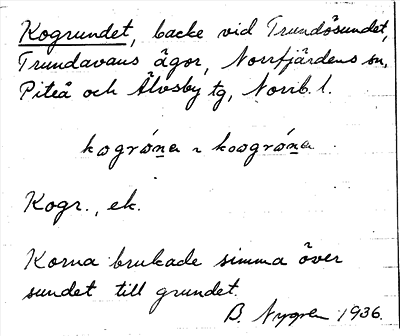 Kogrundet, backe vid Trundösundet,
Trundavans ägor, Norrfjärdens sn,
Piteå och Älvsby tg, Norrb. l.
Kogr., ek.
Korna brukade simma över
sundet till grundet.
B. Nygren 1936.